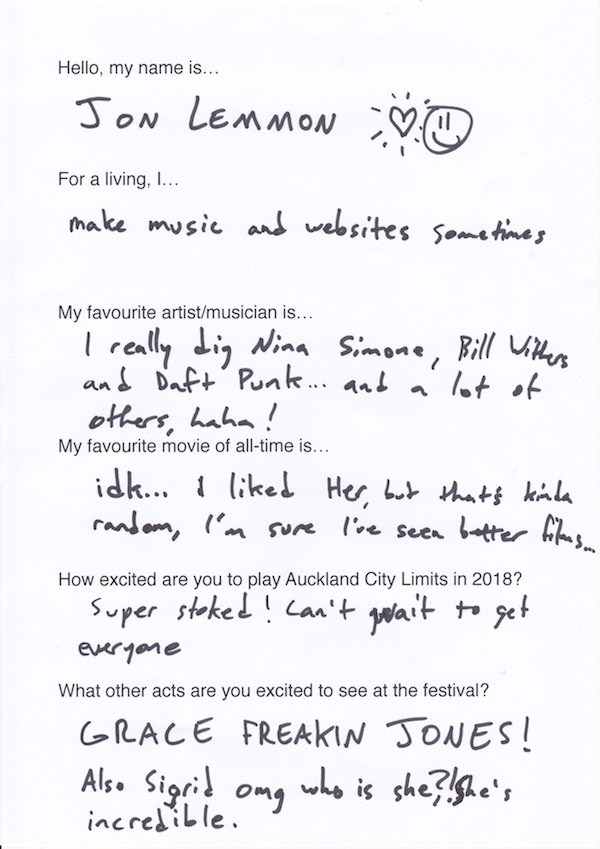 Hello, my name is...
JON LEMMON
For a living, I...
make music and websites sometimes
My favourite artist/musician is...
I really dig Nina Simone, Bill Withers
and Daft Punk... and a lot of
others, haha!
My favourite movie of all-time is...
idk... I liked Her, but that's kinda
random, I'm sure I've seen better films...
How excited are you to play Auckland City Limits in 2018?
Super stoked! Can't wait to get
everyone
What other acts are you excited to see at the festival?
GRACE FREAKIN JONES!
Also Sigrid omg who is she?! She's
incredible.